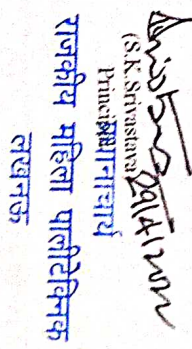 29/4/2022
(S.K. Srivastava)
Principal
प्रधानाचार्य
राजकीय महिला पालीटेक्निक
लखनऊ